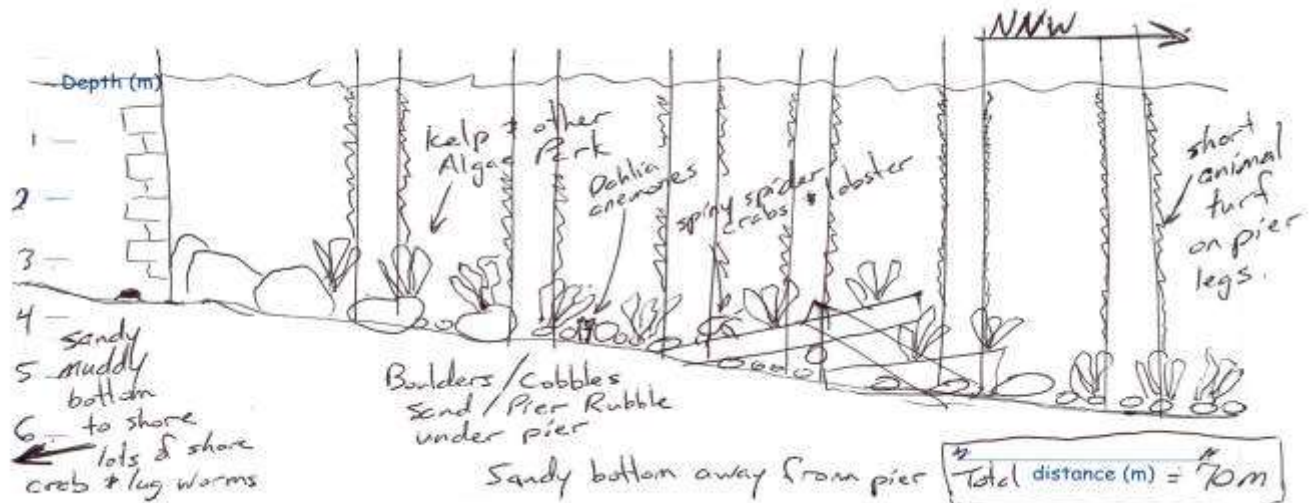 NNW
Depth (m)
1
2
3
4
5
6
kelp & other
Algae Park
Dahlia
anemones
spiny spider
crabs & lobster
short
animal
turf
on pier
legs.
sandy
muddy
bottom
to shore
lots of shore
crab & lug worms
Boulders/Cobbles
Sand/Pier Rubble
under pier
Sandy bottom away from pier
Total distance (m) = 70m